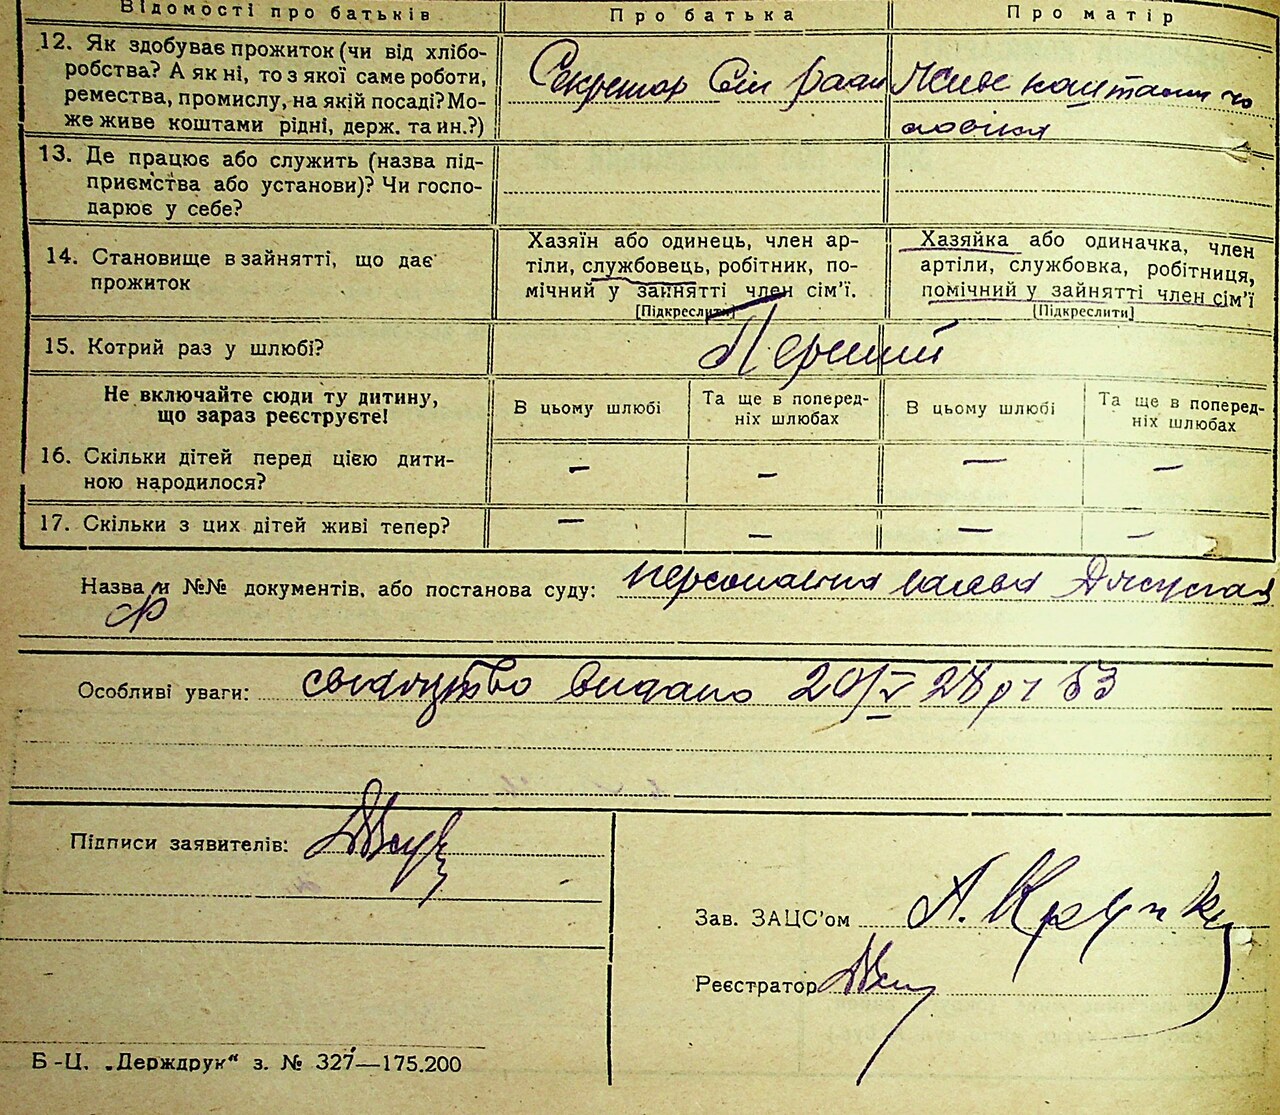 Відомості про батьків
Про батька
Про матір
12. Як здобуває прожиток (чи від хлібо-
робства? А як ні, то з якої саме роботи,
ремества, промислу, на якій посаді? Мо-
же живе коштами рідні, держ. та ин.?)
Секретар Сіл Ради
Живе коштами чо
ловіка
13. Де працює або служить (назва під-
приємства або установи)? Чи госпо-
дарює у себе?
14. Становище в зайнятті, що дає
прожиток
Хазяїн або одинець, член ар-
тіли, службовець, робітник, по-
мічний у зайнятті член сім'ї.
[Підкреслити]
Хазяйка або одиначка, член
артіли, службовка, робітниця,
помічний у зайнятті член сім'ї
[Підкреслити]
15. Котрий раз у шлюбі?
Перший
Не включайте сюди ту дитину,
що зараз реєструєте!
В цьому шлюбі
Та ще в поперед-
ніх шлюбах
В цьому шлюбі
Та ще в поперед-
ніх шлюбах
16. Скільки дітей перед цією дити-
ною народилося?
— — — —
17. Скільки з цих дітей живі тепер?
— — — —
Назва й №№ документів, або постанова суду: персональна
Особливі уваги: свідоцтво видано 20/V 28 р 53
Підписи заявителів:
Зав. ЗАЦС'ом
Реєстратор
Б-Ц. „Держдрук“ з. № 327—175.200